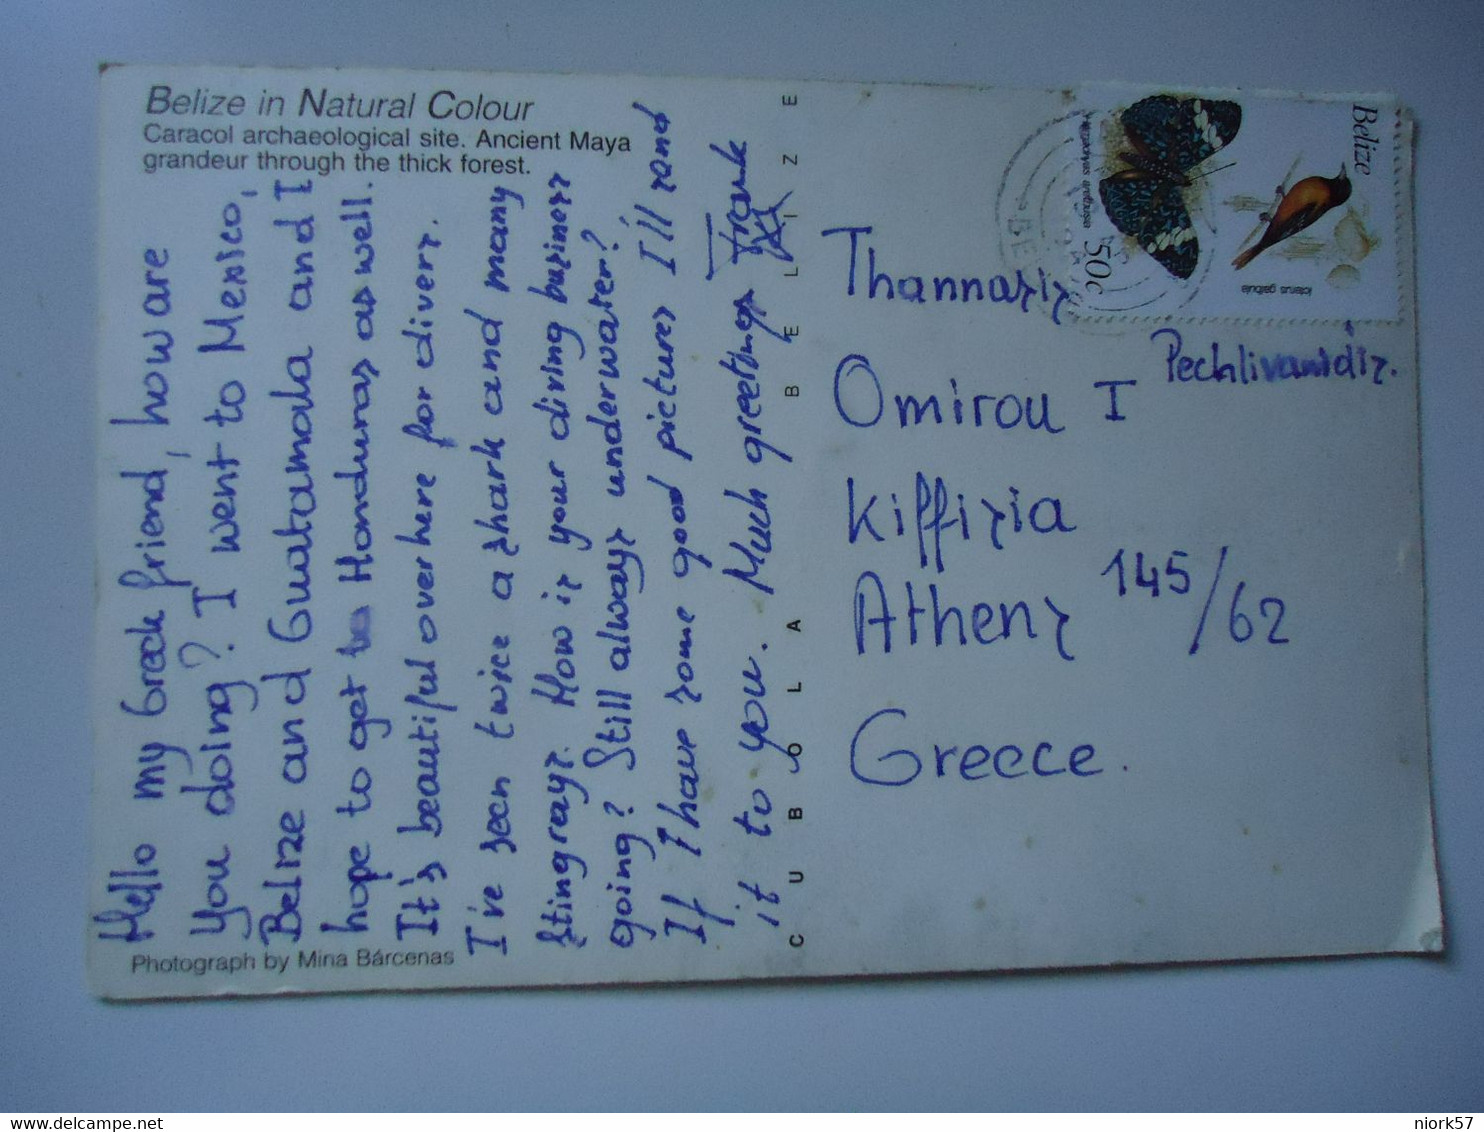 Belize in Natural Colour
Caracol archaeological site. Ancient Maya
grandeur through the thick forest.
Hello my Greek friend, how are
you doing? I went to Mexico,
Belize and Guatamala and I
hope to get to Honduras as well.
It's beautiful over here for divers.
I've seen twice a shark and many
stingrays. How is your diving business
going? Still always underwater?
If I have some good pictures I'll send
it to you. Much greetings Frank
Photograph by Mina Bárcenas
CUBOLA BELIZE
Belize
50c
icterus galbula
Thannasis
Pechlivanidis.
Omirou I
Kiffisia
Athens 145/62
Greece.
niork57